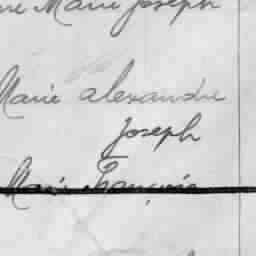 Marie Joseph
Marie Alexandre
Joseph
Marie Françoise